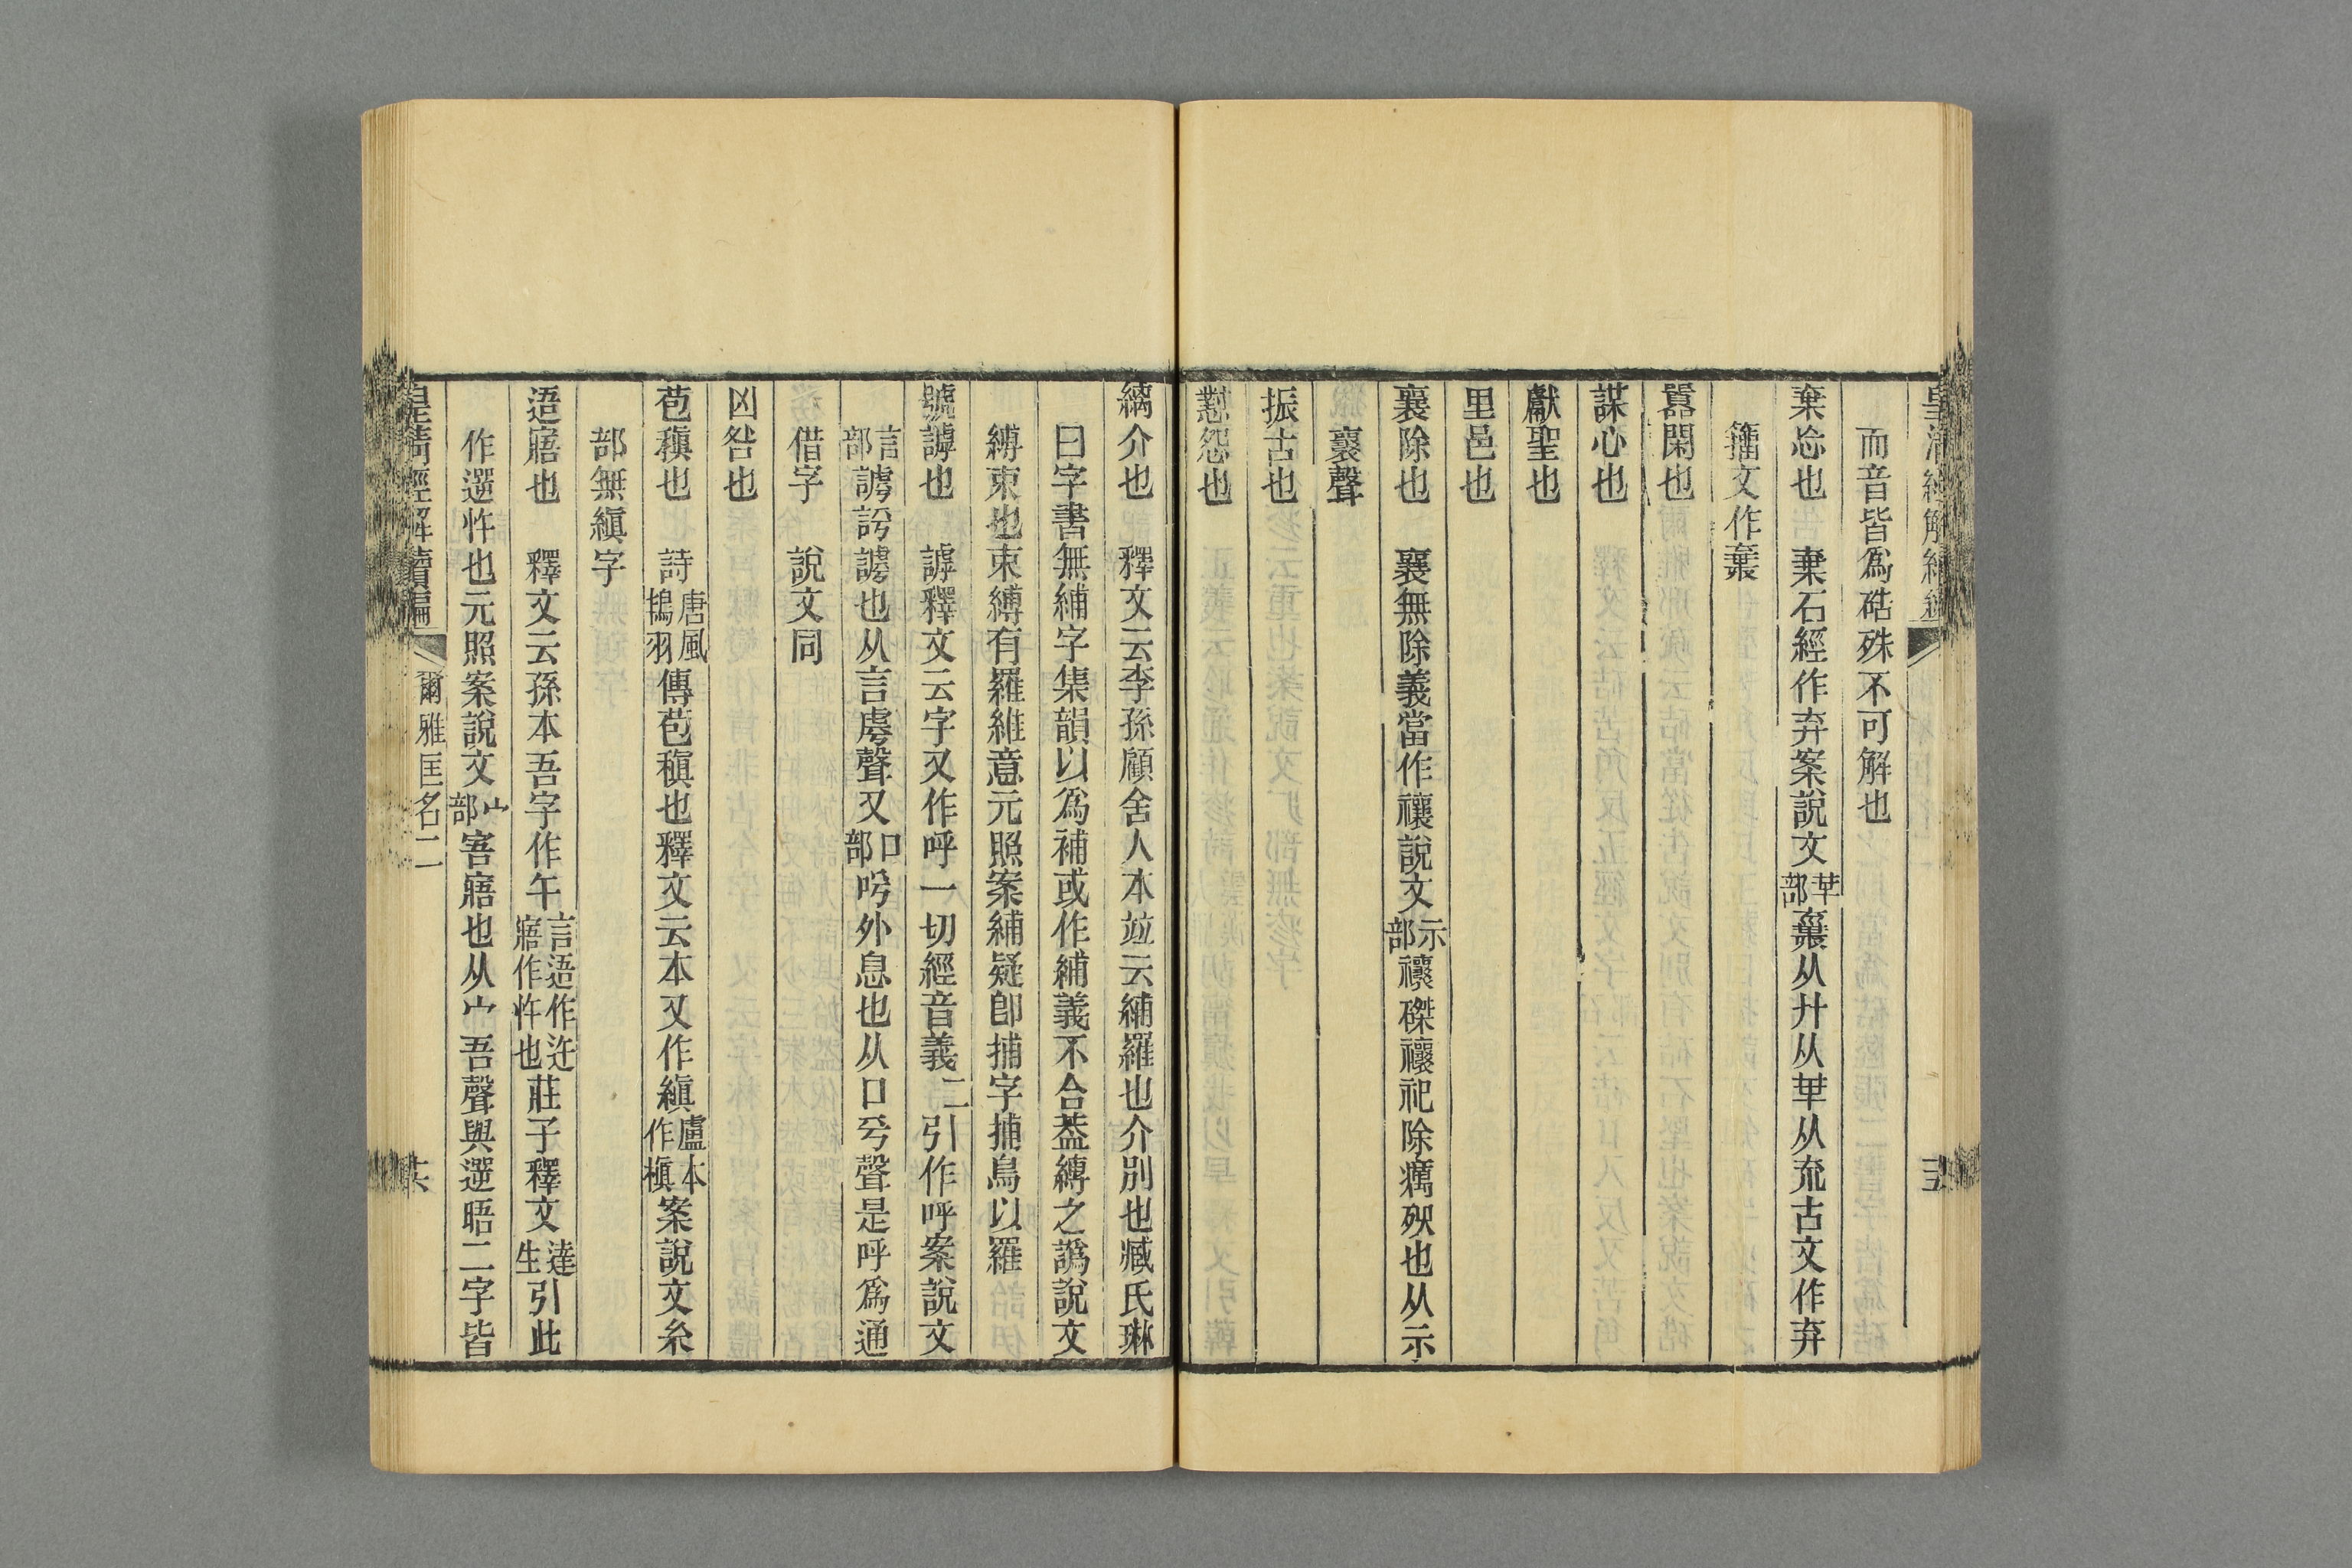 皇清經解續編
而音皆爲硞殊不可解也
棄忘也　棄石經作弃案說文𠦒部棄从廾从𠦒从㐬古文作弃
籒文作𠅏
嚻閑也
謀心也
獻聖也
里邑也
襄除也　襄無除義當作禳說文示部禳磔禳祀除癘殃也从示
襄聲
振古也
懟怨也
縭介也　釋文云李孫顧舍人本竝云縭羅也介別也臧氏琳
曰字書無䋠字集韻以爲補或作䋠義不合葢縛之譌說文
縛束也束縛有羅維意元照案䋠疑卽捕字捕鳥以羅
號謼也　謼釋文云字又作呼一切經音義二引作呼案說文
言部謼訏謼也从言虖聲又口部呼外息也从口乎聲是呼爲通
借字　說文同
凶咎也
苞稹也　詩唐風鴇羽傳苞稹也釋文云本又作縝盧本作槇案說文糸
部無縝字
逜寤也　釋文云孫本吾字作午言逜作迕寤作忤也莊子釋文達生引此
作遻忤也元照案說文宀部寤寤也从宀吾聲與遻晤二字皆
皇淸經解續編
爾雅匡名二